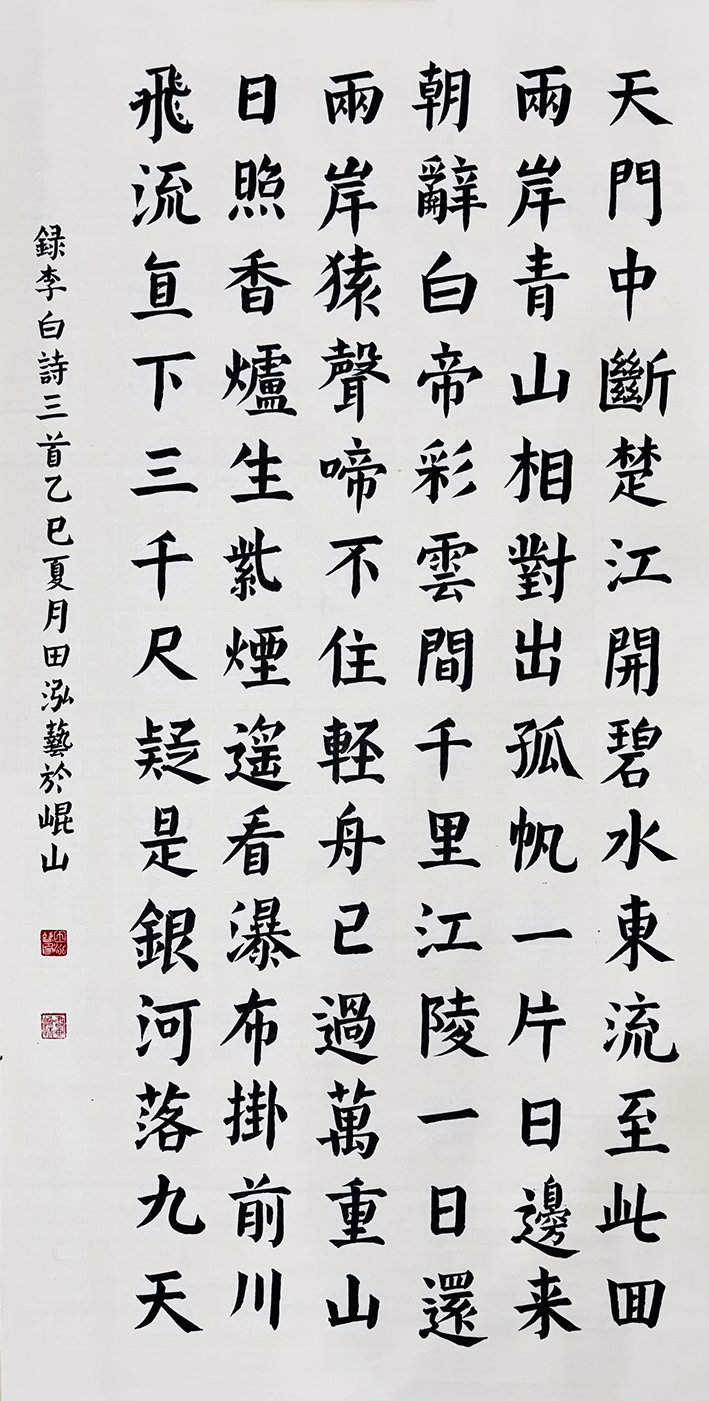 天門中斷楚江開碧水東流至此回
兩岸青山相對出孤帆一片日邊来
朝辭白帝彩雲間千里江陵一日還
兩岸猿聲啼不住輕舟已過萬重山
日照香爐生紫煙遙看瀑布掛前川
飛流直下三千尺疑是銀河落九天
録李白詩三首乙巳夏月田泓藝於崐山